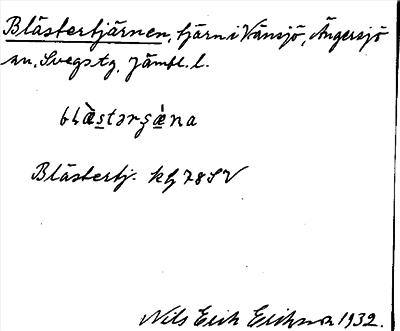 Blästertjärnen, tjärn i Vänsjö, Ängersjö
sn, Svegs tg, Jämtl. l.
Blästertj. kg 78 SV
Nils Erik Eriksson 1932.